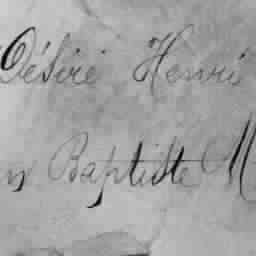 Désiré Henri
n Baptiste M